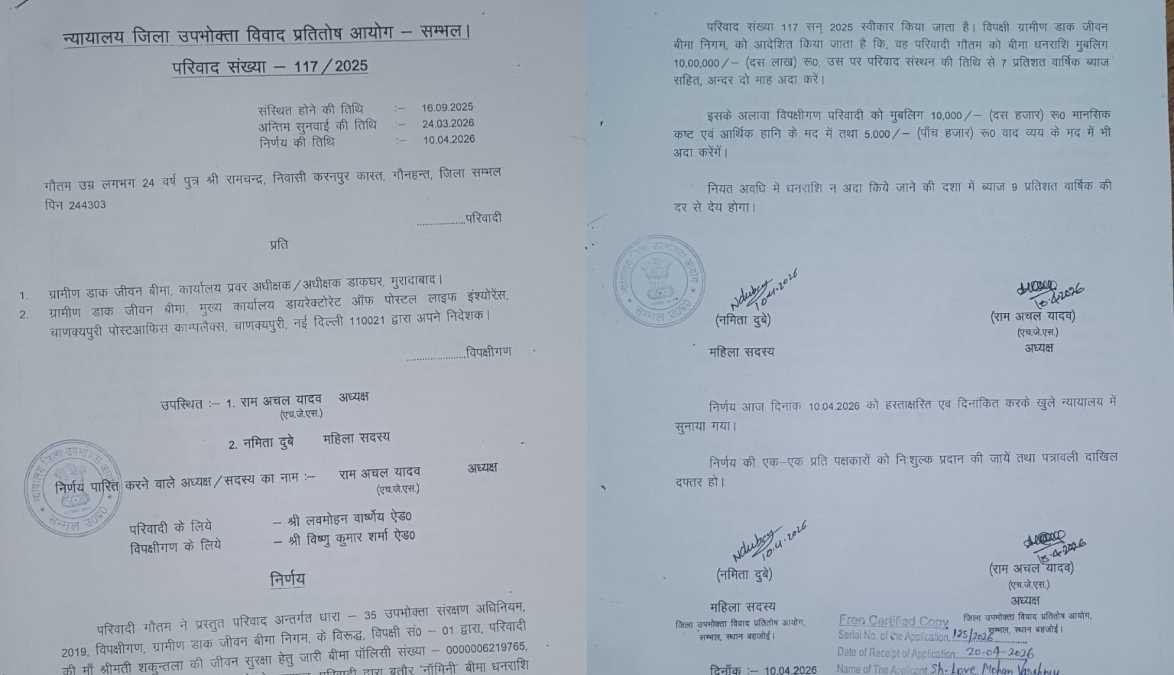 न्यायालय जिला उपभोक्ता विवाद प्रतितोष आयोग – सम्भल।
परिवाद संख्या – 117/2025
संस्थित होने की तिथि :– 16.09.2025
अन्तिम सुनवाई की तिथि :– 24.03.2026
निर्णय की तिथि :– 10.04.2026
गौतम उम्र लगभग 24 वर्ष पुत्र श्री रामचन्द्र, निवासी करनपुर कारत, गौनहन्त, जिला सम्भल
पिन 244303
..................परिवादी
प्रति
1. ग्रामीण डाक जीवन बीमा, कार्यालय प्रवर अधीक्षक/अधीक्षक डाकघर, मुरादाबाद।
2. ग्रामीण डाक जीवन बीमा, मुख्य कार्यालय डायरेक्टोरेट ऑफ पोस्टल लाइफ इंश्योरेंस,
चाणक्यपुरी पोस्टआफिस काम्पलैक्स, चाणक्यपुरी, नई दिल्ली 110021 द्वारा अपने निदेशक।
......................विपक्षीगण
उपस्थित :– 1. राम अचल यादव अध्यक्ष
(एच.जे.एस.)
2. नमिता दुबे महिला सदस्य
निर्णय पारित करने वाले अध्यक्ष/सदस्य का नाम :– राम अचल यादव अध्यक्ष
(एच.जे.एस.)
परिवादी के लिये – श्री लवमोहन वार्ष्णेय ऐड0
विपक्षीगण के लिये – श्री विष्णु कुमार शर्मा ऐड0
निर्णय
परिवादी गौतम ने प्रस्तुत परिवाद अन्तर्गत धारा – 35 उपभोक्ता संरक्षण अधिनियम,
2019, विपक्षीगण, ग्रामीण डाक जीवन बीमा निगम, के विरूद्ध, विपक्षी सं0 – 01 द्वारा, परिवादी
की माँ श्रीमती शकुन्तला की जीवन सुरक्षा हेतु जारी बीमा पॉलिसी संख्या – 0000006219765,
परिवादी द्वारा बतौर 'नॉमिनी' बीमा धनराशि
परिवाद संख्या 117 सन् 2025 स्वीकार किया जाता है। विपक्षी ग्रामीण डाक जीवन
बीमा निगम, को आदेशित किया जाता है कि, वह परिवादी गौतम को बीमा धनराशि मुबलिग
10,00,000/– (दस लाख) रू0, उस पर परिवाद संस्थन की तिथि से 7 प्रतिशत वार्षिक ब्याज
सहित, अन्दर दो माह अदा करें।
इसके अलावा विपक्षीगण परिवादी को मुबलिग 10,000/– (दस हजार) रू0 मानसिक
कष्ट एवं आर्थिक हानि के मद में तथा 5,000/– (पाँच हजार) रू0 वाद व्यय के मद में भी
अदा करेंगें।
नियत अवधि में धनराशि न अदा किये जाने की दशा में ब्याज 9 प्रतिशत वार्षिक की
दर से देय होगा।
10.4.2026
10.4.2026
(नमिता दुबे) (राम अचल यादव)
(एच.जे.एस.)
महिला सदस्य अध्यक्ष
निर्णय आज दिनांक 10.04.2026 को हस्ताक्षरित एवं दिनांकित करके खुले न्यायालय में
सुनाया गया।
निर्णय की एक–एक प्रति पक्षकारों को निःशुल्क प्रदान की जायें तथा पत्रावली दाखिल
दफ्तर हो।
10.4.2026
10.4.2026
(नमिता दुबे) (राम अचल यादव)
(एच.जे.एस.)
महिला सदस्य अध्यक्ष
जिला उपभोक्ता विवाद प्रतितोष आयोग, जिला उपभोक्ता विवाद प्रतितोष आयोग,
सम्भल, स्थान बहजोई। सम्भल, स्थान बहजोई।
Free Certified Copy
Serial No. of the Application 125/2026
Date of Receipt of Application 20-04-2026
दिनाँक :– 10.04.2026
Name of The Applicant Sh. Love Mohan Varshney